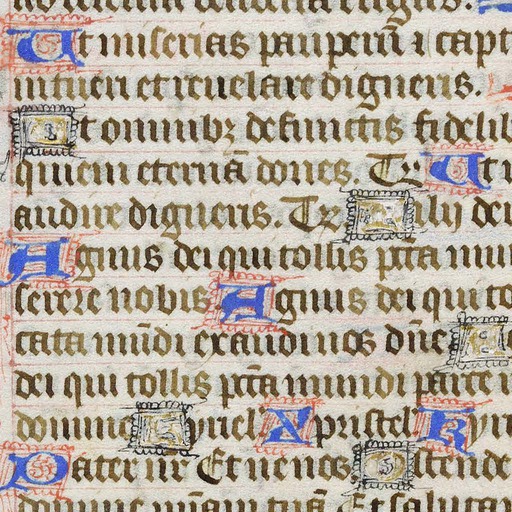 Ut miserias paup̲erũ ⁊ capt
intueri et reuelare digneris.
Et omnibꝫ defunctis fideli
quiem eternã dones. Te Ut n
audire digneris. Te Fili dei
Agnus dei qui tollis pcc̃a mun
serere nobis Agnus dei qui to
cata mũdi exaudi nos dñe A
dei qui tollis pcc̃a mundi parce n
domine Kyriel Xpristel Kyri
Pater nr̃ Et ne nos Ostende
domine mĩam tuã Et saluta